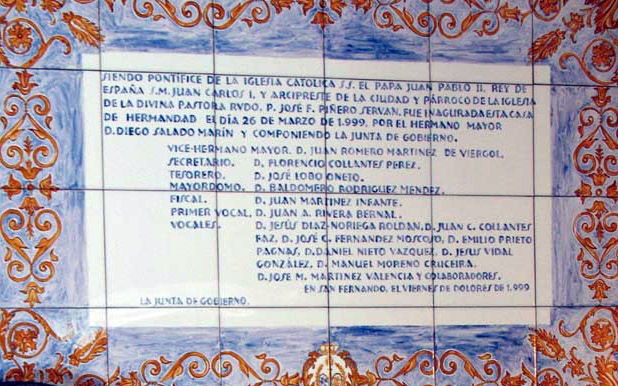 SIENDO PONTIFICE DE LA IGLESIA CATOLICA S.S. EL PAPA JUAN PABLO II, REY DE
ESPAÑA S.M. JUAN CARLOS I, Y ARCIPRESTE DE LA CIUDAD Y PÁRROCO DE LA IGLESIA
DE LA DIVINA PASTORA RVDO. P. JOSÉ F. PIÑERO SERVAN, FUE INAGURADA ESTA CASA
DE HERMANDAD EL DÍA 26 DE MARZO DE 1.999, POR EL HERMANO MAYOR
D. DIEGO SALADO MARÍN Y COMPONIENDO LA JUNTA DE GOBIERNO.
VICE-HERMANO MAYOR. D. JUAN ROMERO MARTINEZ DE VIERGOL.
SECRETARIO. D. FLORENCIO COLLANTES PEREZ.
TESORERO. D. JOSÉ LOBO ONETO.
MAYORDOMO. D. BALDOMERO RODRIGUEZ MENDEZ.
FISCAL. D. JUAN MARTINEZ INFANTE.
PRIMER VOCAL. D. JUAN A. RIVERA BERNAL.
VOCALES. D. JESÚS DIAZ-NORIEGA ROLDAN, D. JUAN C. COLLANTES
FAZ, D. JOSÉ G. FERNANDEZ MOSCOSO, D. EMILIO PRIETO
PAGNAS, D. DANIEL NIETO VAZQUEZ, D. JESUS VIDAL
GONZÁLEZ, D. MANUEL MORENO CRUCEIRA.
D. JOSE M. MARTINEZ VALENCIA Y COLABORADORES.
EN SAN FERNANDO, EL VIERNES DE DOLORES DE 1.999
LA JUNTA DE GOBIERNO.